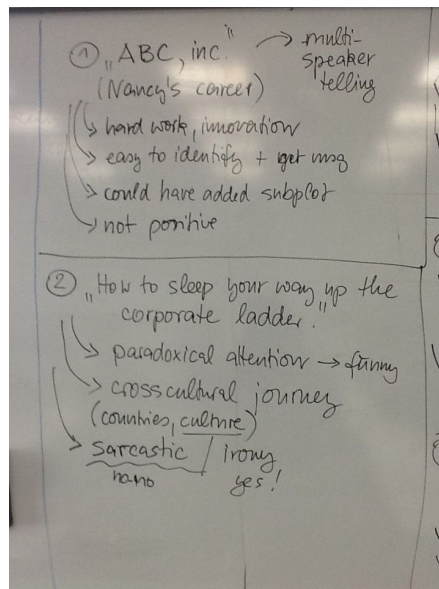 ① „ABC, inc." → multi-
speaker
telling
(Nancy's career)
↳ hard work, innovation
→ easy to identify + get msg
→ could have added subplot
→ not positive
② „How to sleep your way up the
corporate ladder."
→ paradoxical attention → funny
→ crosscultural journey
(countries, culture)
→ sarcastic / irony
no no yes!